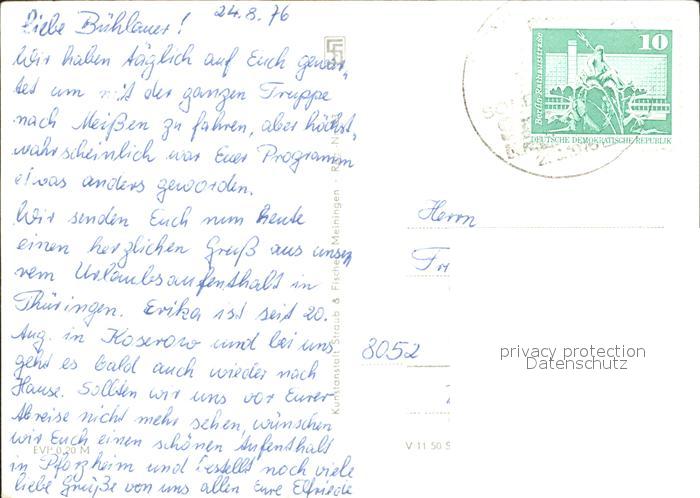 24.8.76
Liebe Bühlauer!
Wir haben täglich auf Euch gewar,
tet um mit der ganzen Truppe
nach Meißen zu fahren, aber höchst,
wahrscheinlich war Euer Programm
etwas anders geworden.
Wir senden Euch nun heute
einen herzlichen Gruß aus unse,
rem Urlaubsaufenthalt in
Thüringen. Erika ist seit 20.
Aug. in Koserow und bei uns
geht es bald auch wieder nach
Hause. Sollten wir uns vor Eurer
Abreise nicht mehr sehen, wünschen
wir Euch einen schönen Aufenthalt
in Pforzheim und bestellt noch viele
liebe Grüße von uns allen Eure Elfriede
EVP 0,20 M
Kunstanstalt Straub & Fischer Meiningen
V 11 50
10
Berlin, Rathausstraße
DEUTSCHE DEMOKRATISCHE REPUBLIK
Herrn
Fr
8052
privacy protection
Datenschutz